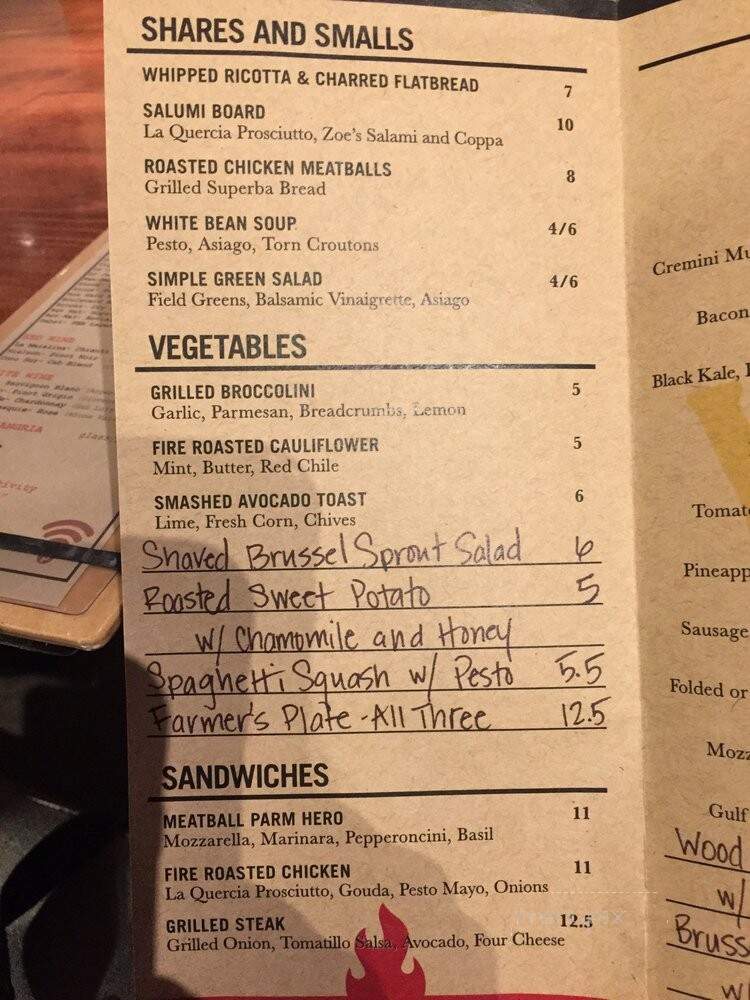 SHARES AND SMALLS
WHIPPED RICOTTA & CHARRED FLATBREAD 7
SALUMI BOARD 10
La Quercia Prosciutto, Zoe's Salami and Coppa
ROASTED CHICKEN MEATBALLS 8
Grilled Superba Bread
WHITE BEAN SOUP 4/6
Pesto, Asiago, Torn Croutons
SIMPLE GREEN SALAD 4/6
Field Greens, Balsamic Vinaigrette, Asiago
VEGETABLES
GRILLED BROCCOLINI 5
Garlic, Parmesan, Breadcrumbs, Lemon
FIRE ROASTED CAULIFLOWER 5
Mint, Butter, Red Chile
SMASHED AVOCADO TOAST 6
Lime, Fresh Corn, Chives
Shaved Brussel Sprout Salad 6
Roasted Sweet Potato 5
w/ Chamomile and Honey
Spaghetti Squash w/ Pesto 5.5
Farmer's Plate - All Three 12.5
SANDWICHES
MEATBALL PARM HERO 11
Mozzarella, Marinara, Pepperoncini, Basil
FIRE ROASTED CHICKEN 11
La Quercia Prosciutto, Gouda, Pesto Mayo, Onions
GRILLED STEAK 12.5
Grilled Onion, Tomatillo Salsa, Avocado, Four Cheese
Cremini Mu
Bacon
Black Kale,
Tomato
Pineapp
Sausage
Folded or
Mozz
Gulf
Wood
w/
Bruss
w/